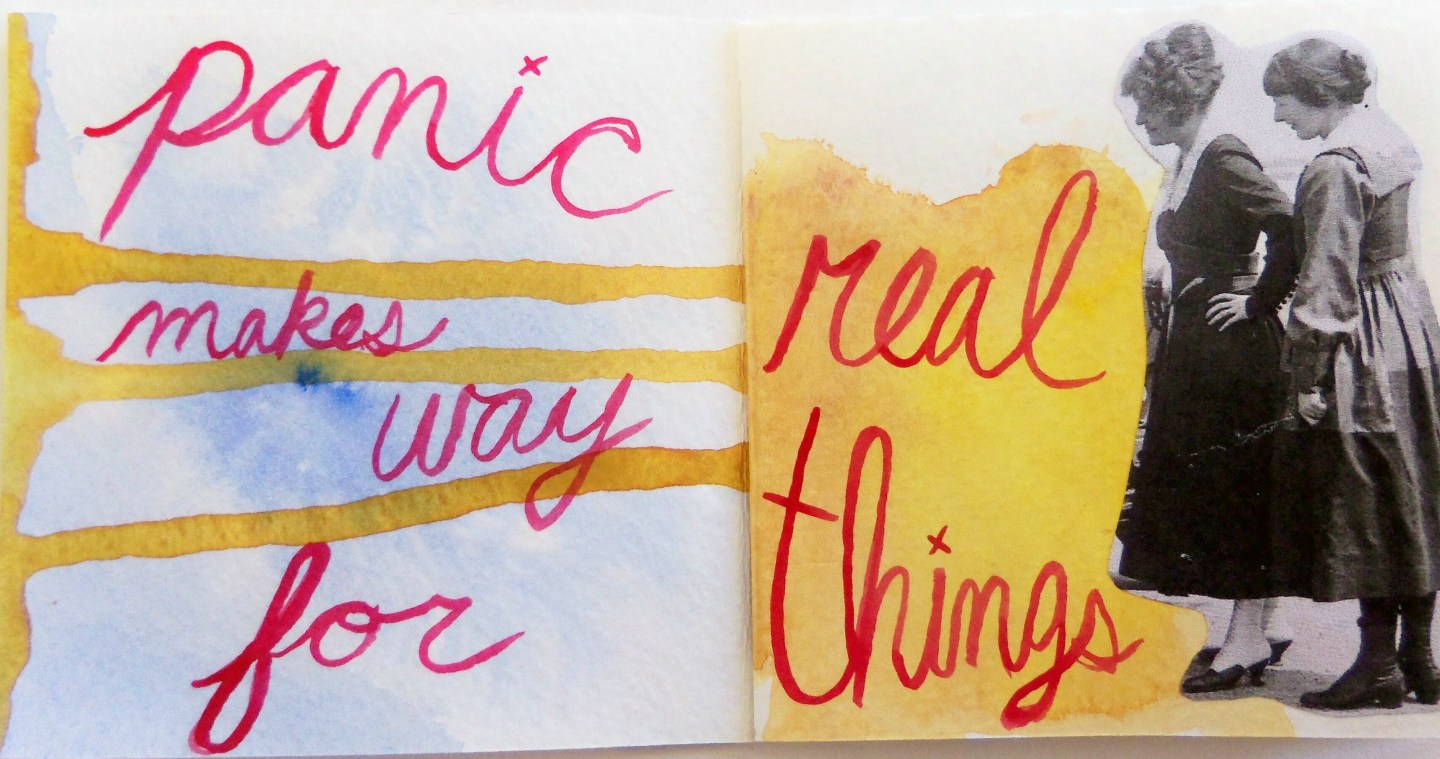 panic
makes
way
for
real
things